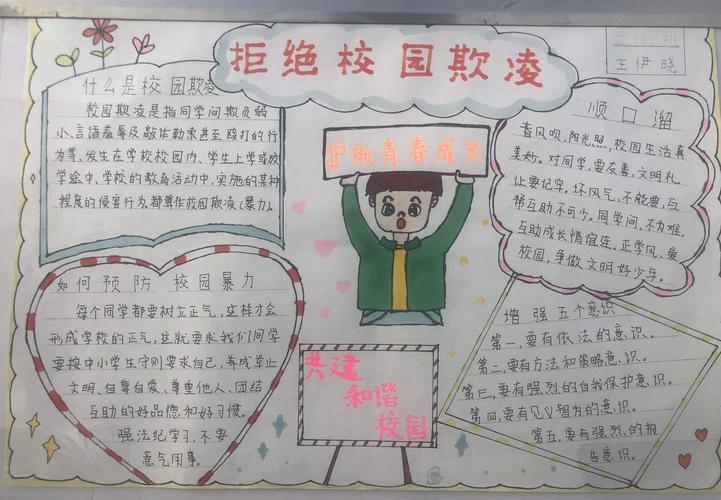 拒绝校园欺凌
王伊晓
什么是校园欺凌
校园欺凌是指同学间欺负弱
小、言语羞辱及敲诈勒索甚至殴打的行
为等,发生在学校校园内、学生上学或放
学途中、学校的教育活动中,实施的某种
程度的侵害行为,都算作校园欺凌(暴力)。
护航青春成长
顺口溜
春风吹,阳光照,校园生活真
美妙。对同学,要友善,文明礼
让要记牢。坏风气,不能要,互
帮互助不可少。同学间,不为难,
互助成长情谊连。正学风,爱
校园,争做文明好少年。
如何预防校园暴力
每个同学都要树立正气,这样才会
形成学校的正气,这就要求我们同学
要按中小学生守则要求自己,养成举止
文明、自尊自爱、尊重他人、团结
互助的好品德和好习惯。
强法纪学习,不要
意气用事。
共建
和谐
校园
增强五个意识
第一,要有依法的意识。
第二,要有方法和策略意识。
第三,要有强烈的自我保护意识。
第四,要有见义智为的意识。
第五,要有强烈的报
告意识。